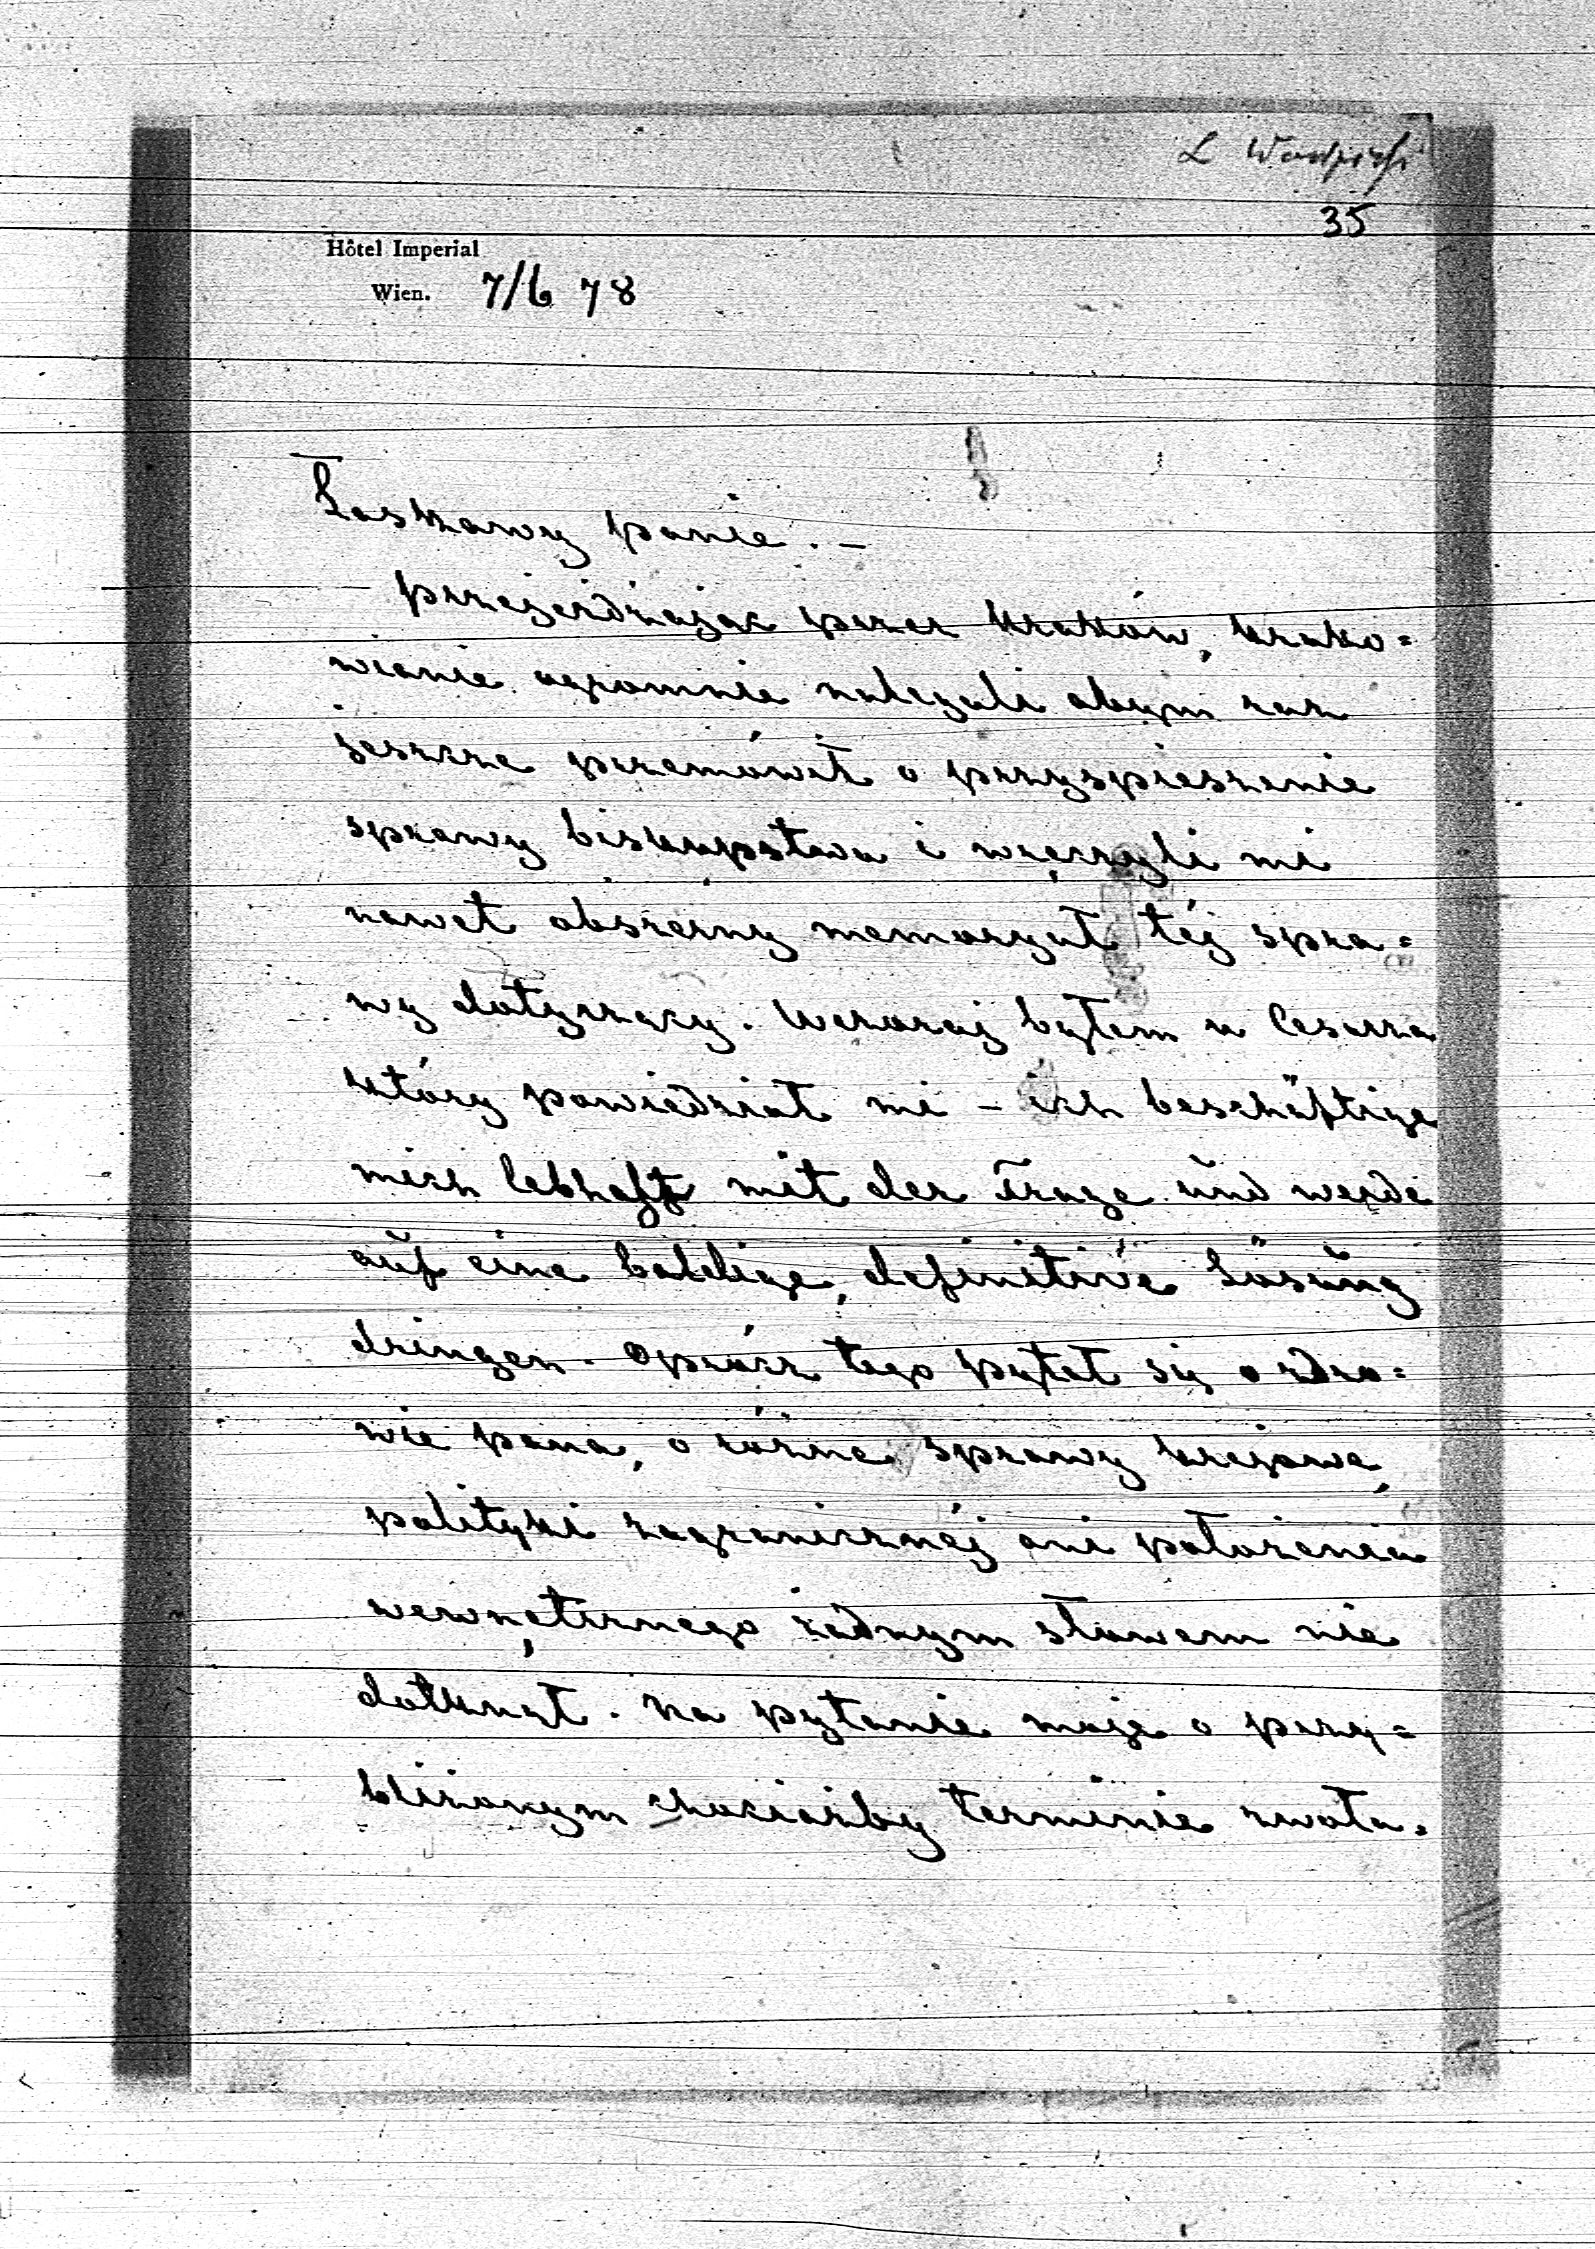 L Wodzicki
35
Hôtel Imperial
Wien. 7/6 78
Łaskawy panie. –
przejeżdżając przez Kraków, krako=
wianie ogromnie nalegali abym raz
jeszcze przemówił o przyspieszenie
sprawy biskupstwa i wręczyli mi
nawet obszerny memoryał téj spra=
wy dotyczący. Wczoraj byłem u Cesarza
który powiedział mi – ich beschäftige
mich lebhaft mit der Frage und werde
auf eine baldige, definitive Lösung
dringen. Oprócz tego pytał się o zdro=
wie pana, o różne sprawy krajowe,
polityki zagranicznéj ani położenia
wewnętrznego żadnym słowem nie
dotknął. Na pytanie moje o przy=
bliżonym chociażby terminie zwoła=